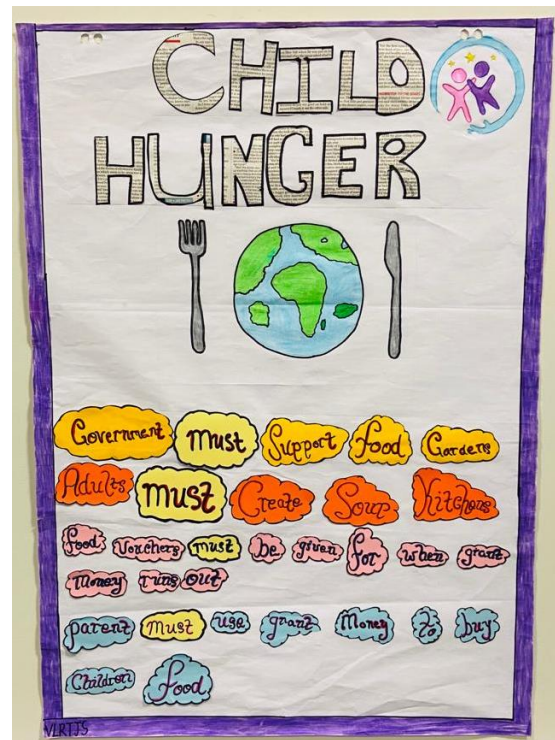 CHILD
HUNGER
Government must Support food Gardens
Adults must Create Soup Kitchens
food Vouchers must be given for when grant
Money runs out
parent must use grant Money to buy
Children food
VLRTJS